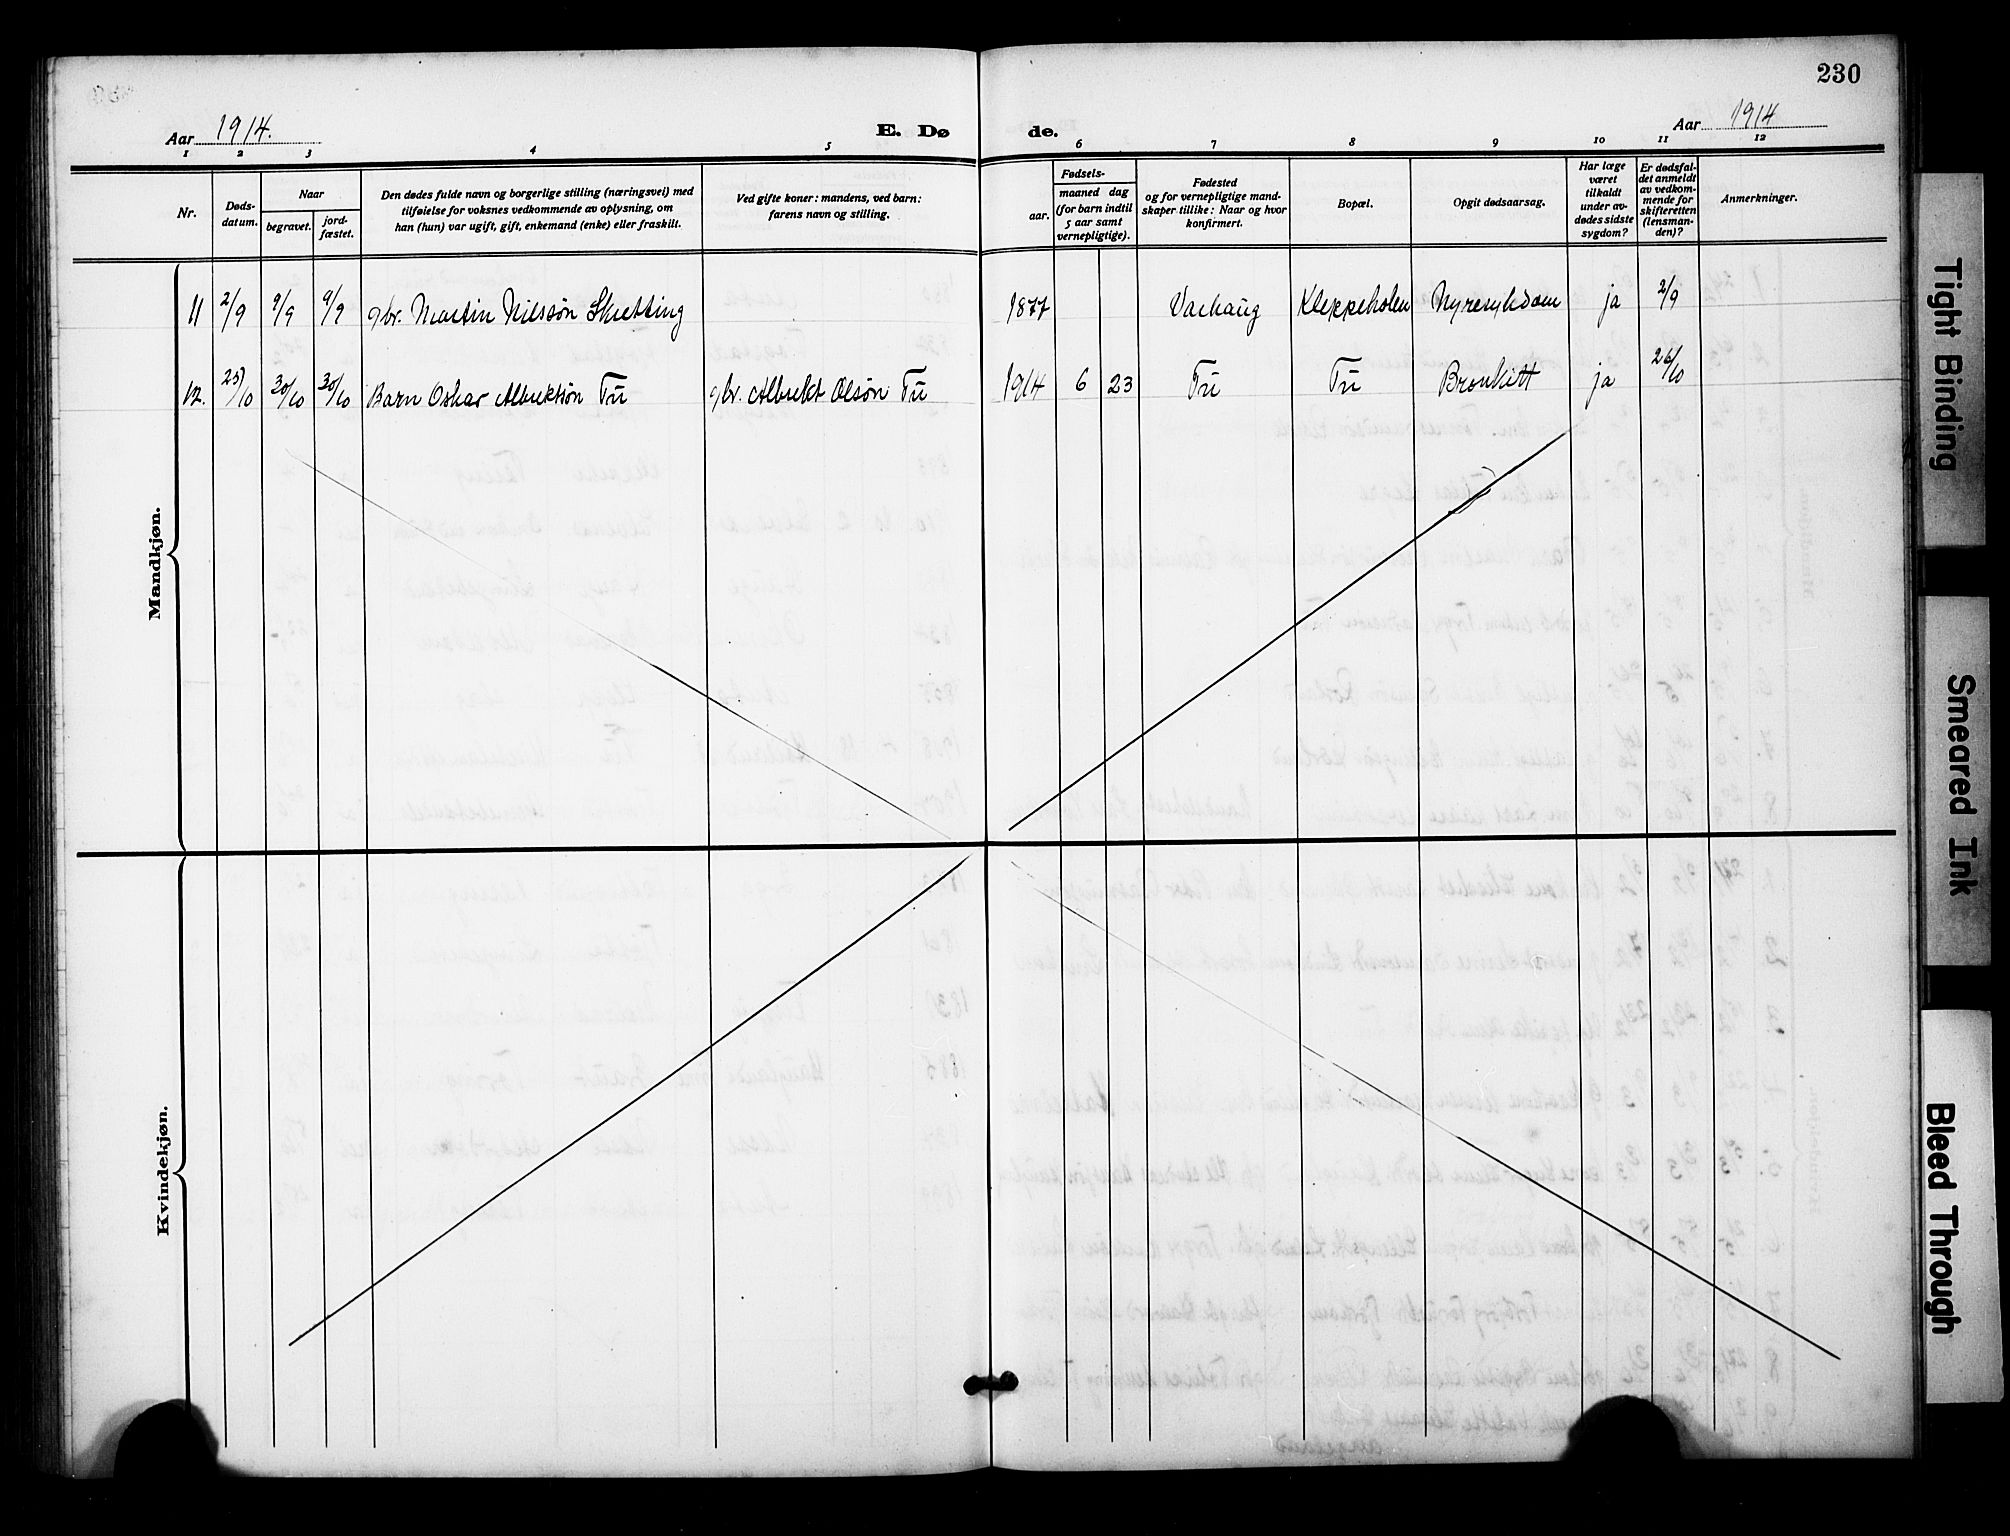 230
Aar 1914.
E. Dø
de.
Aar 1914
1 2 3 4 5 6 7 8 9 10 11 12
Nr.
Døds-
datum.
Naar
begravet.
jord-
fæstet.
Den dødes fulde navn og borgerlige stilling (næringsvei) med
tilføielse for voksnes vedkommende av oplysning, om
han (hun) var ugift, gift, enkemand (enke) eller fraskilt.
Ved gifte koner: mandens, ved barn:
farens navn og stilling.
Fødsels-
aar.
maaned dag
(for barn indtil
5 aar samt
vernepligtige).
Fødested
og for vernepligtige mand-
skaper tillike: Naar og hvor
konfirmert.
Bopæl.
Opgit dødsaarsag.
Har læge
været
tilkaldt
under av-
dødes sidste
sygdom?
Er dødsfal-
det anmeldt
av vedkom-
mende for
skifteretten
(lensman-
den)?
Anmerkninger.
Mandkjøn.
11 2/9 9/9 9/9 gbr. Martin Nilssøn Skretting 1877 Varhaug Kleppeholen Nyresykdom ja 2/9
12. 25/10 30/10 30/10 Barn Oskar Albrektsøn Tu gbr. Albrekt Olsøn Tu 1914 6 23 Tu Tu Bronkitt ja 26/10
Kvindekjøn.
Tight Binding
Smeared Ink
Bleed Through